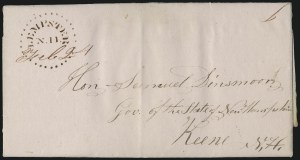 LEMPSTER
N.H.
6
Hon. Samuel Dinsmoor
Gov of the State of New Hampshire
Keene
N.H.